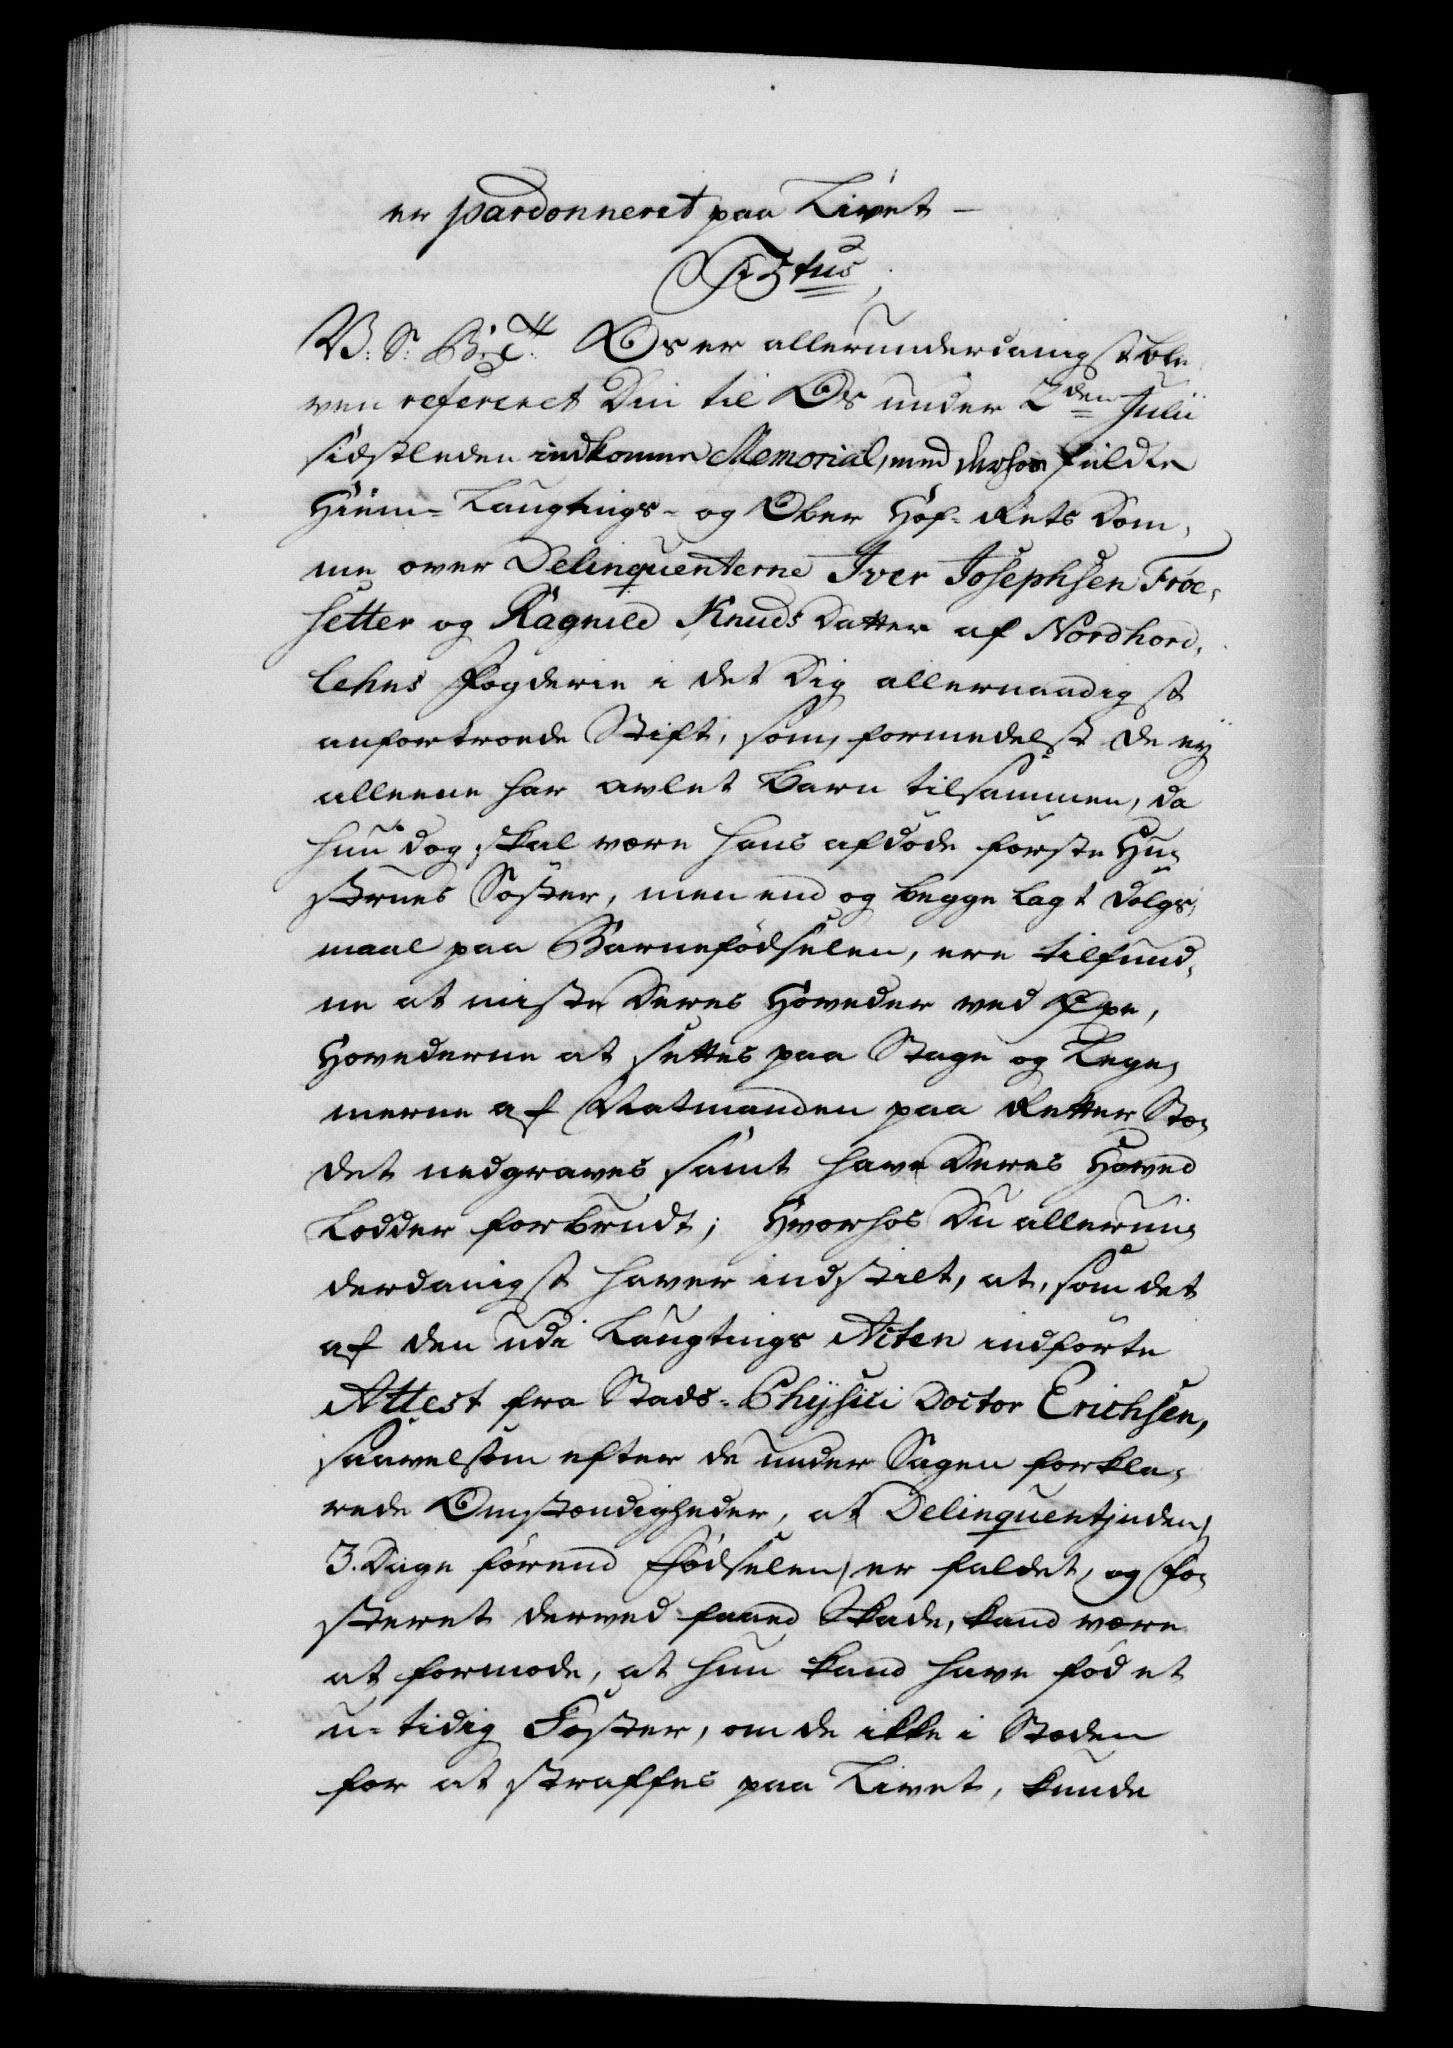 er pardonneret paa Livet –
C 5tus
V: S: B: T: Os er allerunderdanigst ble,
ven refereret Din til Os under 2den Julii
sidstleden indkomne Memorial, med derhos fulde
Hiem- Laugtings- og Ober Hof- Rets Dom,
me over Delinquenterne Iver Josephsen Froe,
setter og Ragnild Knuds Datter af Nordhord,
lehns Fogderie i det Dig allernaadigst
anfortroede Stift, som, formedelst de ej
alleene har avlet Barn tilsammen, da
hun dog skal være hans afdøde første Hu,
strues Søster, men end og begge lagt Dølgs,
maal paa Barnefødselen, ere tilfund,
ne at miste Deres Hoveder ved Øxe,
Hovederne at settes paa Stage og Lege,
merne af Natmanden paa Retter Stæ,
det nedgraves samt have Deres Hoved
Lodder forbrudt; Hvorhos Du allerun,
derdanigst haver indstilt, at, som det
af den udi Laugtings Acten indførte
Attest fra Stads- Physici Doctor Erichsen,
saavelsom efter de under Sagen forkla,
rede Omstændigheder, at Delinquentinden,
3. Dage førend Fødselen, er faldet, og Fo,
steret derved faaed Skade, kand være
at formode, at hun kand have fød et
u-tidig Foster, om de ikke i Stæden
for at straffes paa Livet, kunde